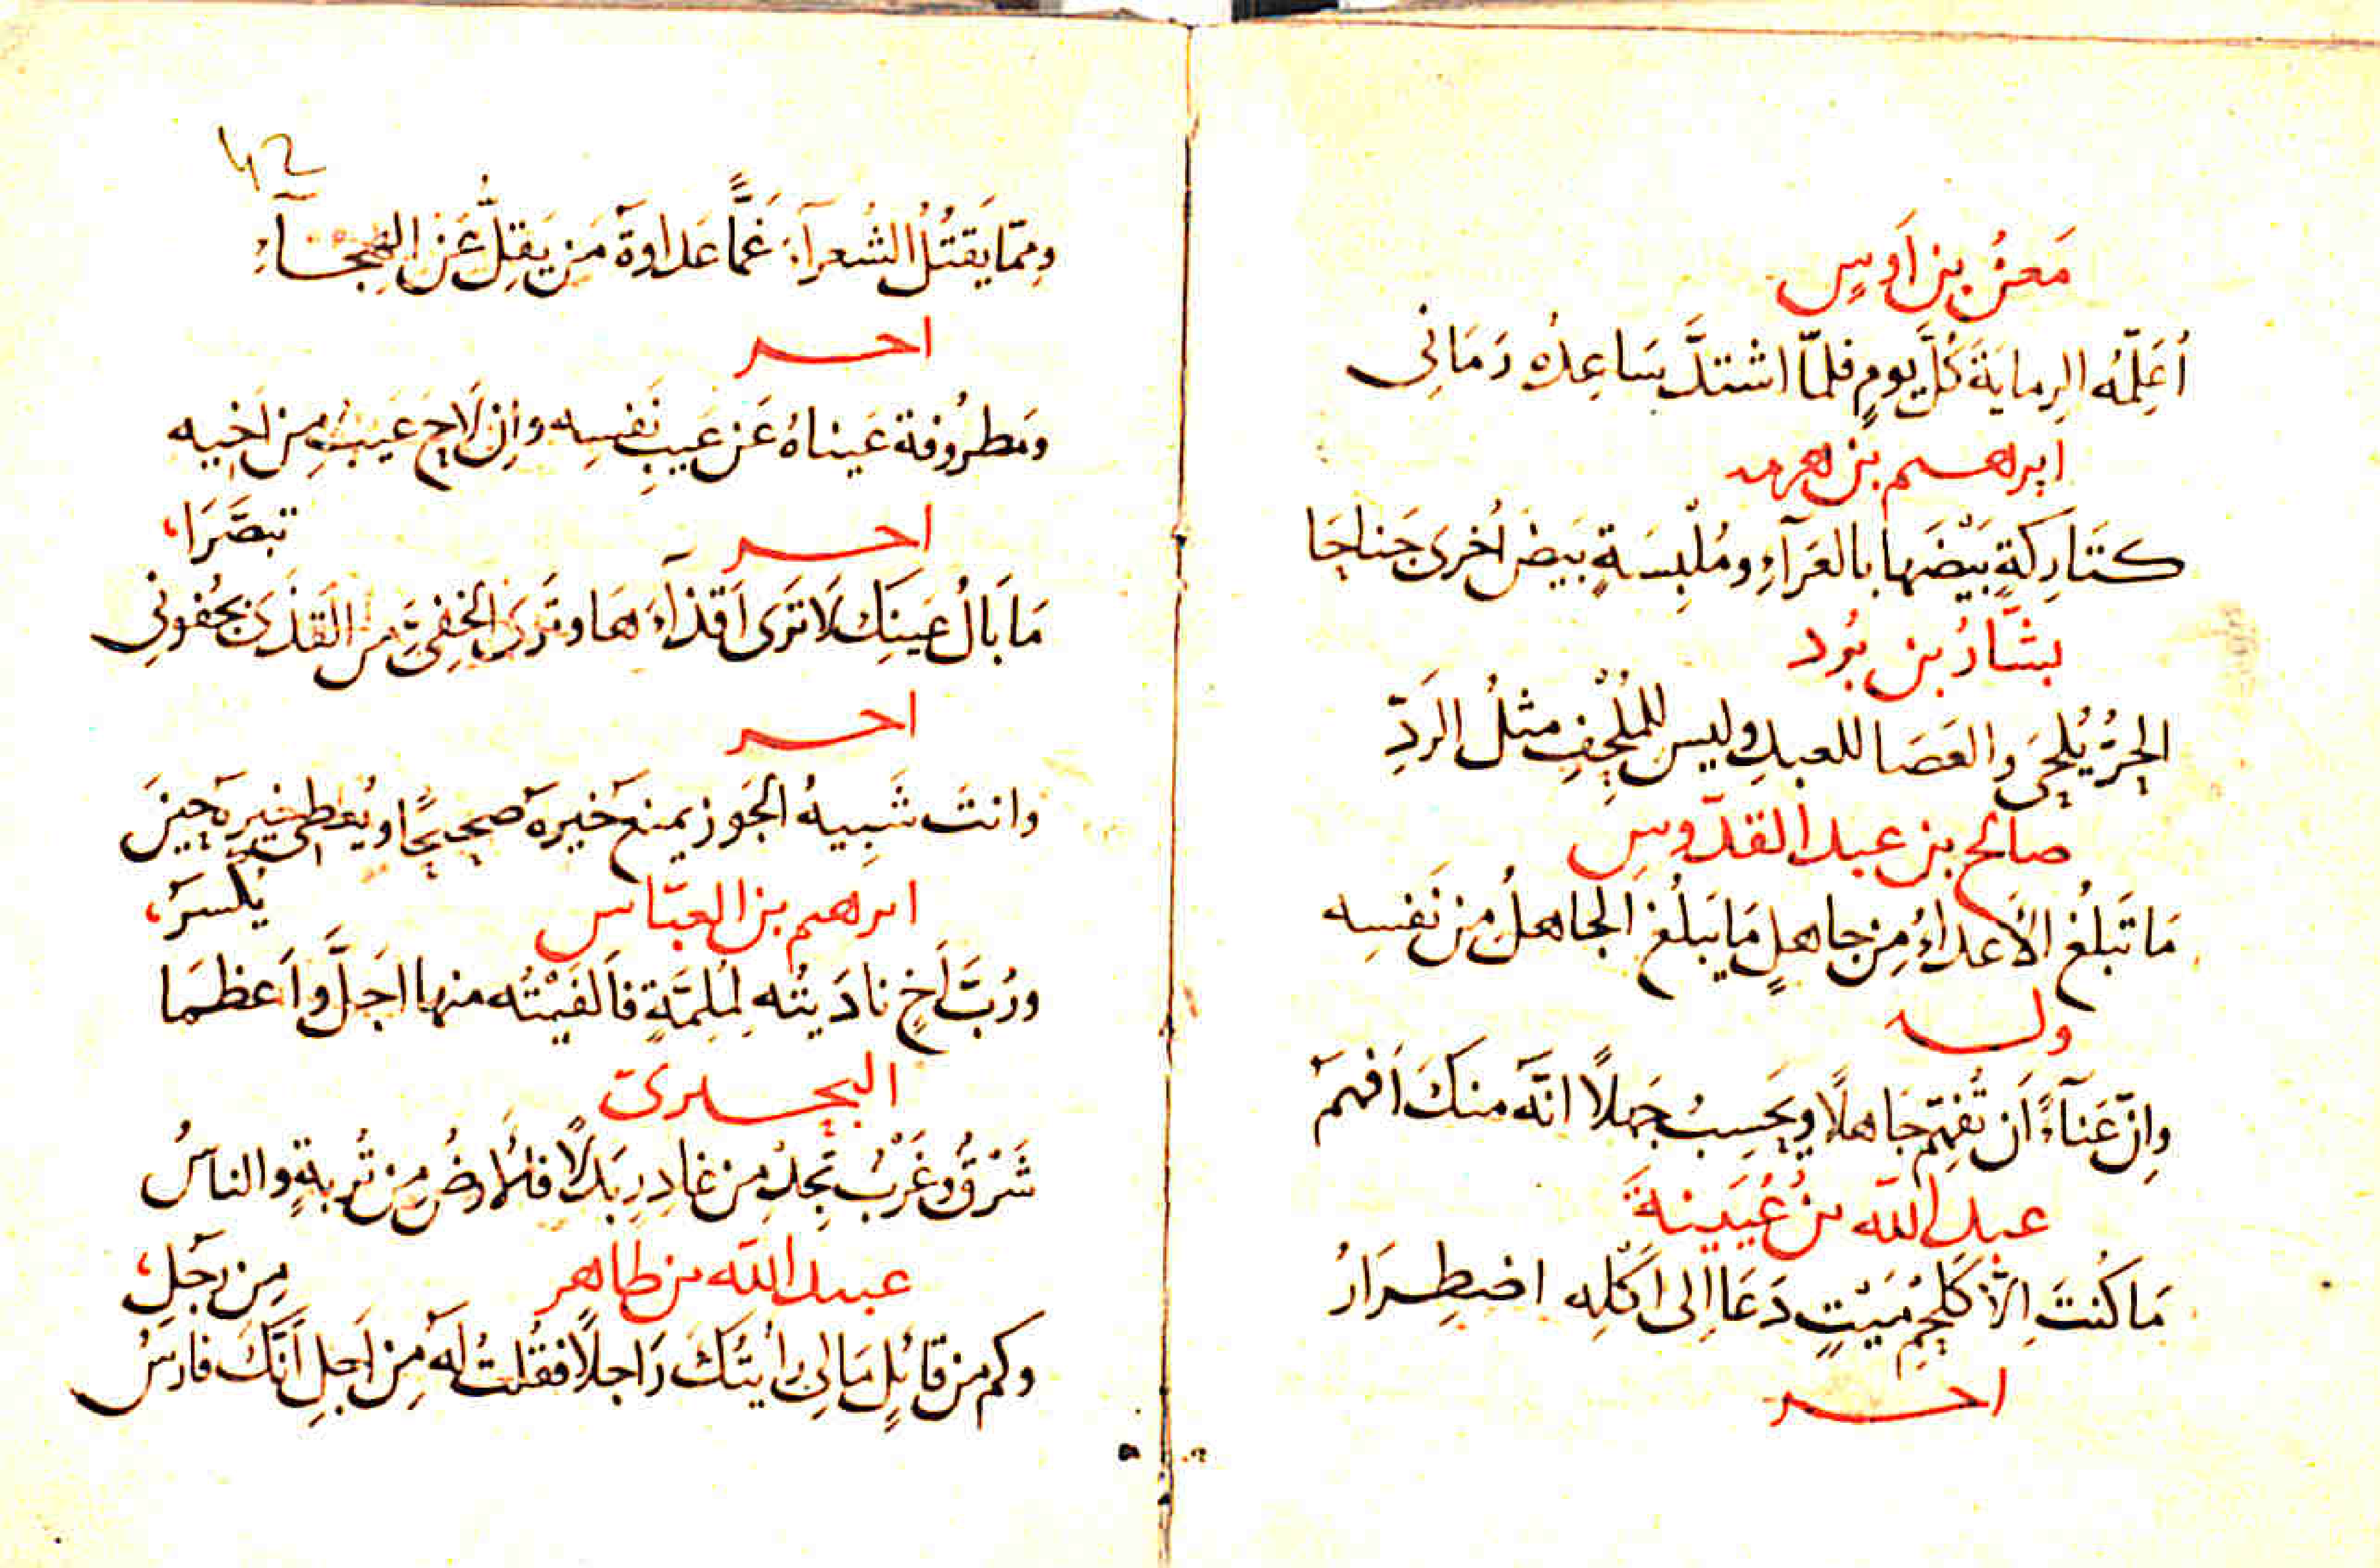 مَعنُ بن اَوسٍ
اُعَلِّمُه الرِمايَةَ كُلَّ يومٍ فلمّا اشتدَّ سَاعِدُه رَمَانِى
ابرهيم بن هرمه
كتَارِكةٍ بَيْضَها بالعَرآءِ ومُلْبِسَةٍ بَيضَ اُخرى جَناحَا
بشّارُ بن بُرد
الحُرُّ يُلحَى والعَصَا للعبدِ وليس للمُلْحِفِ مثلُ الرَدِّ
صالح بن عبد القدّوس
مَا تَبلُغ الاَعداءُ مِن جاهلٍ مَا يَبلُغ الجاهلُ مِن نَفسِه
وله
وإنّ عَنآءً اَن تُفَهِّم جَاهلًا ويَحسِبُ جَهلًا انّه منكَ اَفهَمُ
عبد الله بنُ عُيَينةَ
مَا كُنتَ اِلّا كَلَحمِ مَيْتٍ دَعَا اِلى اَكْلِه اضطِرَارُ
اخر
٤٢
وممّا يَقتُلُ الشُعرآءَ غَمًّا عَداوةُ مَن يَقِلُّ عَن الهِجَآءِ
اخر
ومَطرُوفة عَيناهُ عَن عَيبِ نَفسِه وإن لَاحَ عَيبٌ مِن اَخِيه
تبصَّرَا،
اخر
مَا بَالُ عَينِك لَا تَرَى اَقذآءَهَا وتَرَى الخفِىَّ مِن القَذَى بجُفونِى
اخر
وانتَ شَبِيهُ الجَوز يمنع خَيرهَ صحيحًا ويُعطِى خيرهَ حِينَ
يُكسَرُ،
ابرهيم بن العبّاس
ورُبَّ اَخٍ نادَيتُه لِمُلِمَّةٍ فاَلفَيْتُه منها اجَلَّ وَاَعظَمَا
البحترىّ
شَرِّقْ وغَرِّبْ تَجِدْ مِن غادِرٍ بَدلًا فالأرضُ مِن تُربةٍ والناسُ
مِن رَجُلِ،
عبيد الله بن طاهر
وكم مِن قائلٍ مَالِى رأيتُكَ رَاجلًا فقُلتُ لَه مِن اَجلِ اَنّكَ فارِسُ